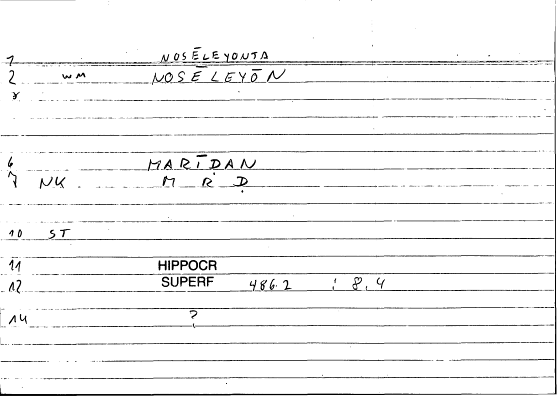 1 NOSĒLEYONTA
2 WM NOSĒLEYŌN
6 MARĪḌAN
7 NK M R Ḍ
10 ST
11 HIPPOCR
12 SUPERF 486.2 : 8,4
14 ?